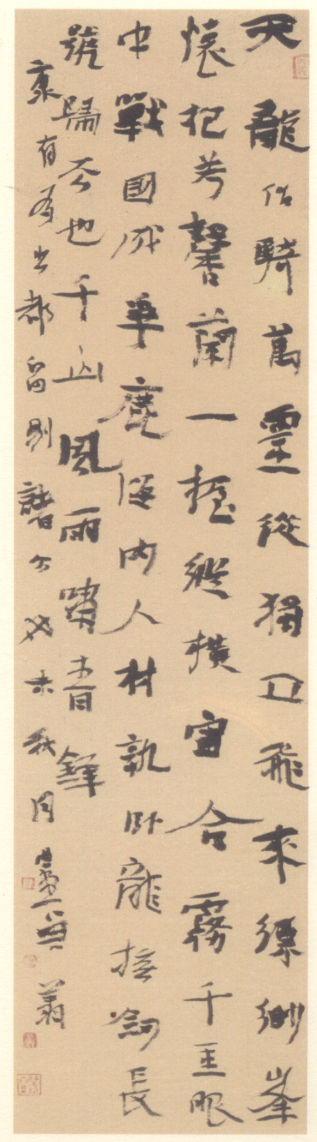 天龍作騎萬靈從獨立飛來縹緲峯
懷抱芳馨蘭一握縱橫宙合霧千重眼
中戰國成爭鹿海內人材孰臥龍撫劍長
號歸去也千山風雨嘯青鋒
康有為出都留別諸公癸未秋月翁